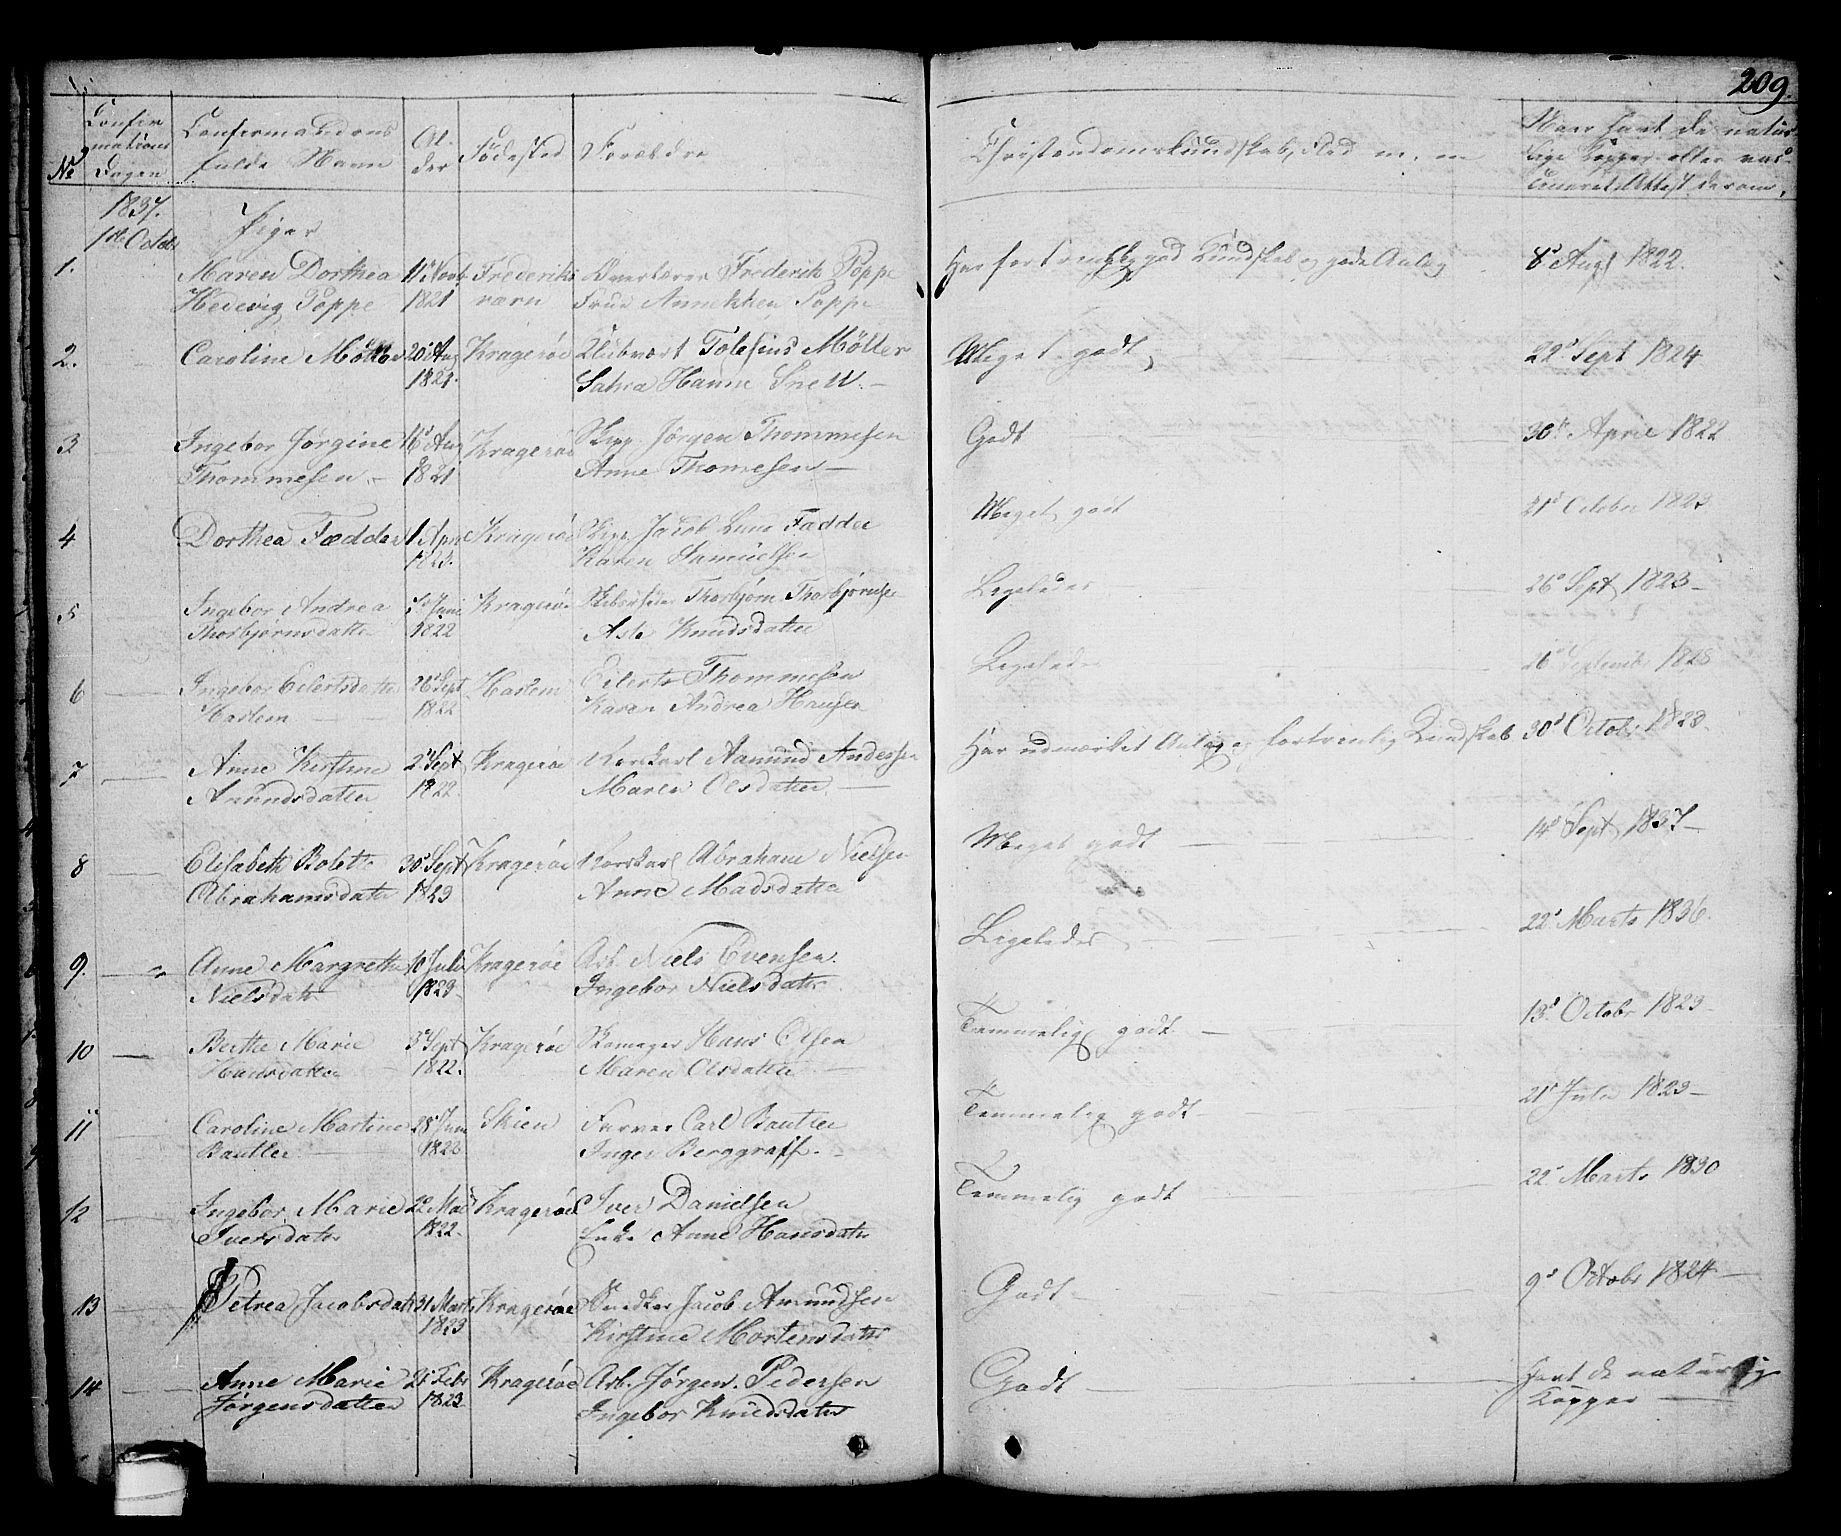 209.
No
Confir
mations
Dagen
Confirmandens
fulde Navn
Al-
der
Fødested
Forældre
Christendomskundskab, Flid m. m
Naar havt de natur-
lige Kopper eller vac-
cineret & Attest derom.
1837.
1ste Octobr
Piger
1.
Maren Dorthea
Hedevig Poppe
11te Novbr
1821
Frederiks
værn
Overtærer Frederik Poppe
Frue Annekken Poppe
Har fortrinlig god Kundskab og gode Anlæg
8d Augt 1822.
2.
Caroline Møller
20d Aug
1821.
Kragerøe
Klubvært Tolefius Möller
Sahra Hanne Snell. —
Meget godt,
22d Sept 1824
3
Ingebor Jørgine
Thommesen. -
16d Aug
1821
Kragerøe
Skip. Jörgen Thommesen
Anne Thomesen —
Godt
30te Aprie 1822
4
Dorthea Fædder
1 Apri
1823.
Kragerøe
Skip. Jacob Lund Fædder
Karen Samuelsen
Meget godt
21d October 1823
5
Ingebor Andrea
Thorbjørnsdatter
Juni
1822
Kragerøe
Thorbjørn Thorbjørnse
Aste Knudsdatter
Ligeledes
26d Sept 1823 —
6
Ingebor Eilertsdatter
Haslem
26d Sept
1822
Haslem
Eilerts Thommesen
Karen Andrea Hansen
Ligeledes
26d September 1828
7
Anne Kirstine
Amundsdatter
2d Sept
1822.
Kragerøe
Torskarl Aamund Andersen
Maren Olsdatter. —
Har udmærket Anlæg og fortrinlig Kundskab
30d Octobr 1823.
8
Elisabeth Bolette
Abrahamsdatter
30d Sept
1823
Kragerøe
Torskarl Abraham Nielsen
Anne Madsdatter
Meget godt
14d Sept 1837 —
9.
Anne Margrethe
Nielsdatr
10 Juli
1823.
Kragerøe
Arb. Niels Evensen.
Ingebor Nielsdatter
Ligeledes
22d Marts 1836.
10
Berthe Marie
Hansdatter
3d Sept
1822.
Kragerøe
Skomager Hans Olsen
Maren Olsdatter
Temmelig godt —
13d Octobr 1823
11
Caroline Martine
Bautler
28d Juni
1822
Skien
Farver Carl Bautler
Inger Berggraff. -
Temmelig godt
21d Julii 1823 —
12
Ingebor Marie
Iversdatter
22 Mai
1822.
Kragerøe
Iver Danielsen
Enke Anne Hansdatter
Temmelig godt
22d Marts 1830
13
Petrea Jacobsdatter
31 Marts
1823
Kragerøe
Snedker Jacob Amundsen
Kirstine Mortensdatter
Godt
9d Octobr 1824 —
14
Anne Marie
Jørgensdatter
21d Febr
1823
Kragerøe
Arb. Jörgen Pedersen
Ingebor Knudsdatter
Godt
havt de naturlig
Kopper